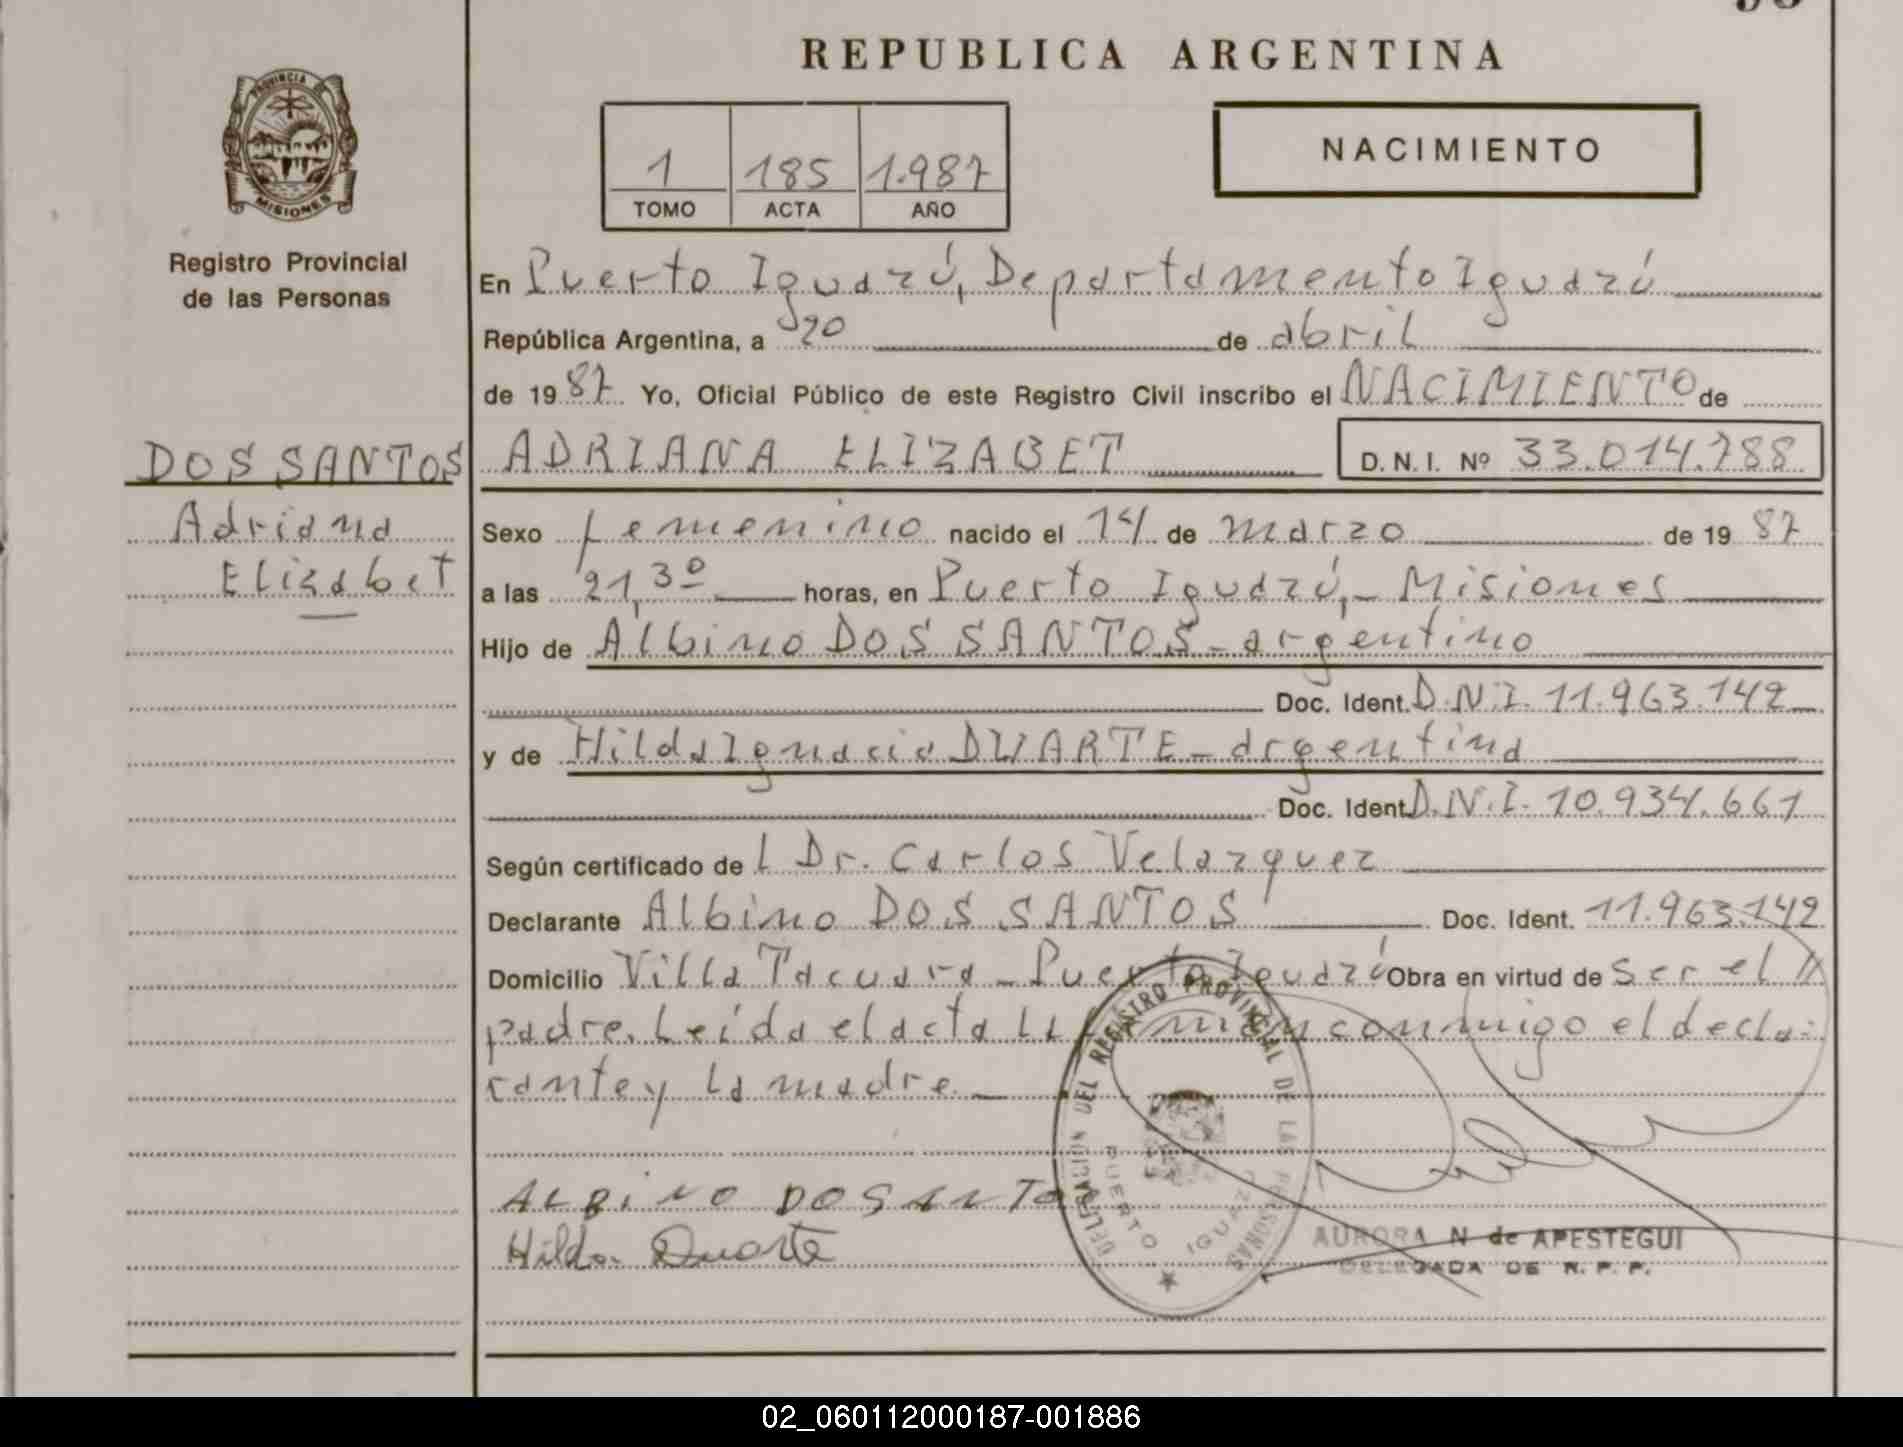 REPUBLICA ARGENTINA
PROVINCIA DE
MISIONES
Registro Provincial
de las Personas
1 185 1.987
TOMO ACTA AÑO
NACIMIENTO
En Puerto Iguazú, Departamento Iguazú
República Argentina, a 20 de abril
de 1987 Yo, Oficial Público de este Registro Civil inscribo el NACIMIENTO de
DOS SANTOS
Adriana
Elizabet
ADRIANA ELIZABET D.N.I. Nº 33.014.788
Sexo femenino nacido el 14 de marzo de 1987
a las 21,30 horas, en Puerto Iguazú,- Misiones
Hijo de Albino DOS SANTOS - argentino
Doc. Ident. D.N.I. 11.963.142
y de Hilda Ignacia DUARTE - argentina
Doc. Ident. D.N.I. 10.934.661
Según certificado de l Dr. Carlos Velazquez
Declarante Albino DOS SANTOS Doc. Ident. 11.963.142
Domicilio Villa Tacuara - Puerto Iguazú Obra en virtud de ser el
padre. Leída el acta la conmigo el decla-
rante y la madre.
ALBINO DOSANTO
Hilda Duarte
DELEGACION DEL REGISTRO PROVINCIAL DE LAS PERSONAS
PUERTO IGUAZU
AURORA N de APESTEGUI
DELEGADA DE R. P. P.
02_060112000187-001886